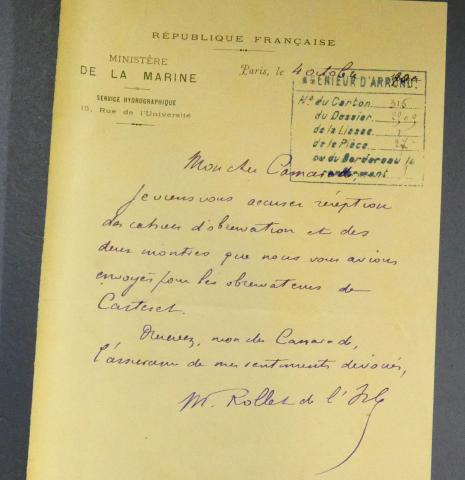 RÉPUBLIQUE FRANÇAISE
MINISTÈRE
DE LA MARINE
SERVICE HYDROGRAPHIQUE
13, Rue de l'Université
Paris, le 4 octobre
INGÉNIEUR D'ARROND.
No du Carton 316
du Dossier
de la Liasse
de la Pièce
ou du Bordereau le
renfermant
Mon cher Camarade,
Je viens vous accuser réception
des cahiers d'observation et des
deux montres que nous vous avions
envoyés pour les observateurs de
Casteret.
Recevez, mon cher Camarade,
l'assurance de mes sentiments dévoués,
M. Rollet de l'Isle